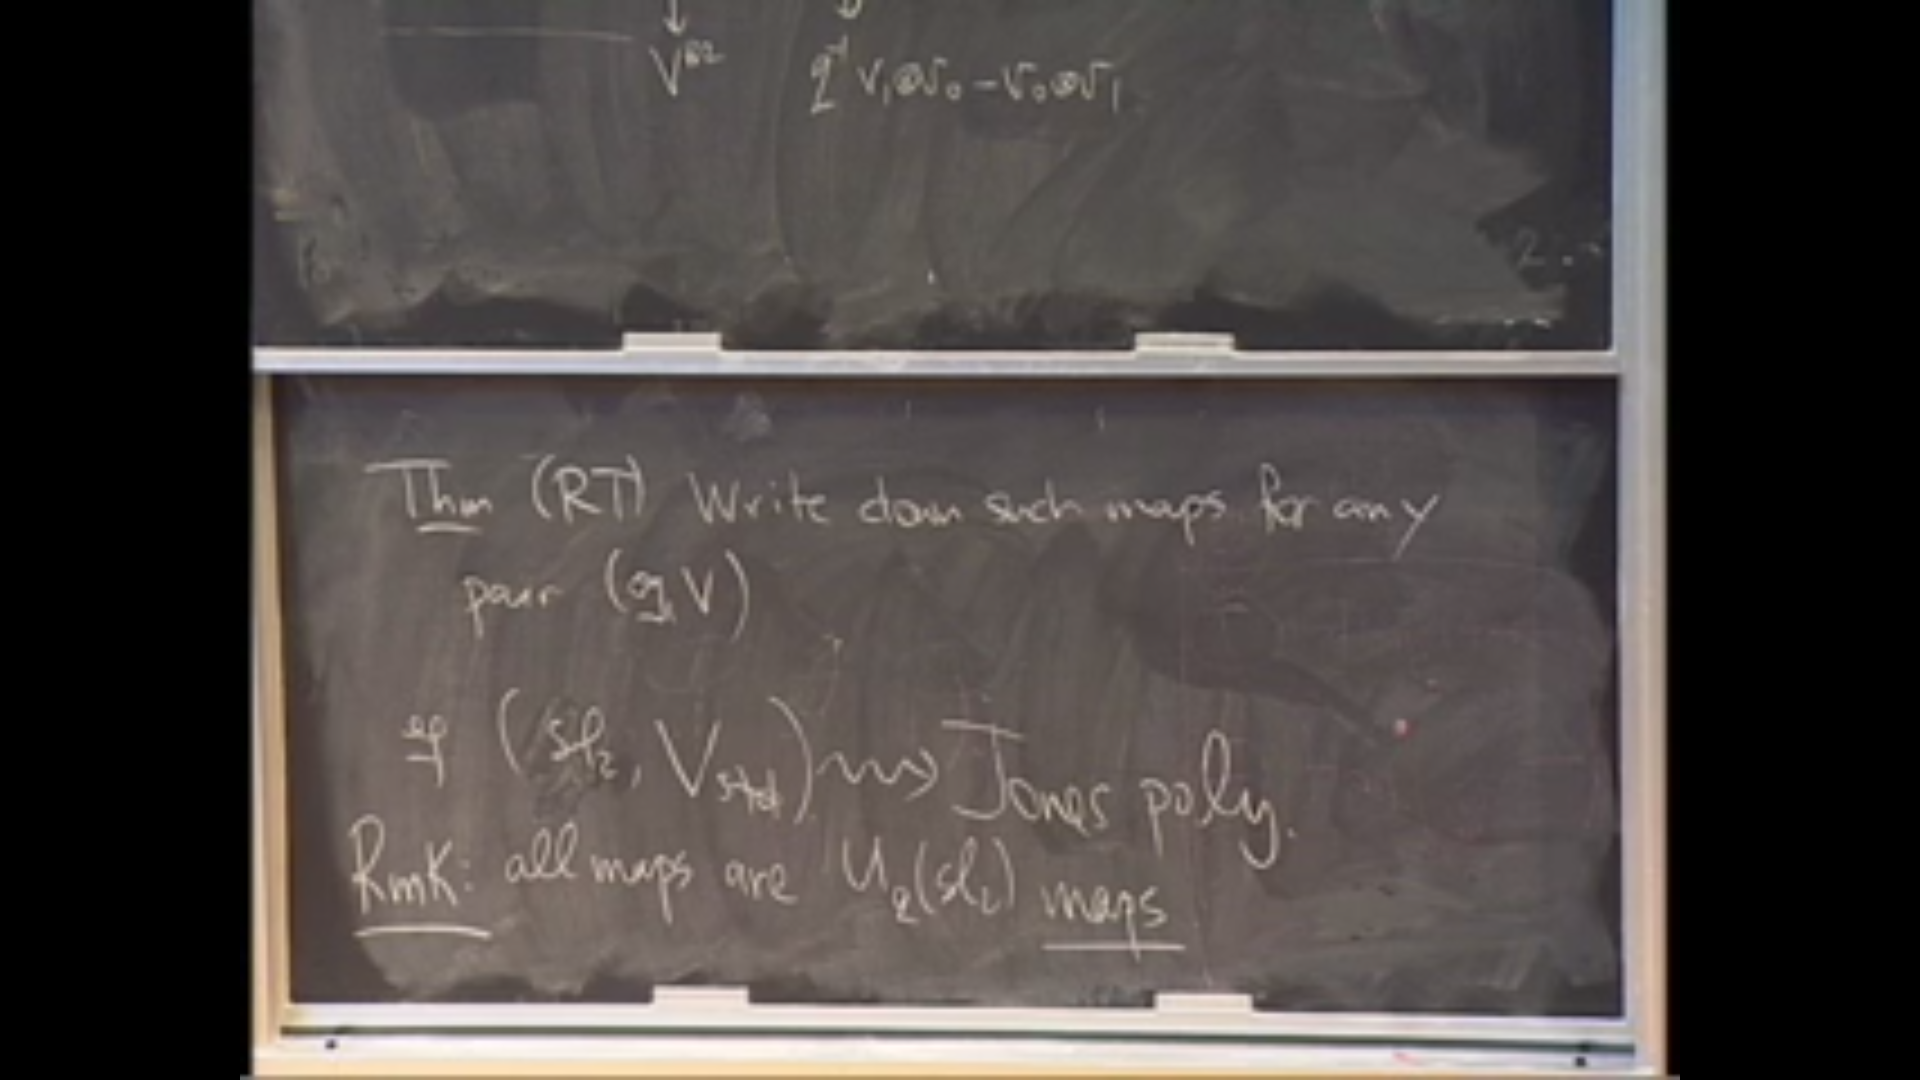 ↓
V^{⊗2} q^{-1} v₁⊗v₀ - v₀⊗v₁
2.
Thm (RT) Write down such maps for any
pair (g, V)
eg (sl₂, V_std) ⇝ Jones poly.
Rmk: all maps are U_q(sl₂) maps